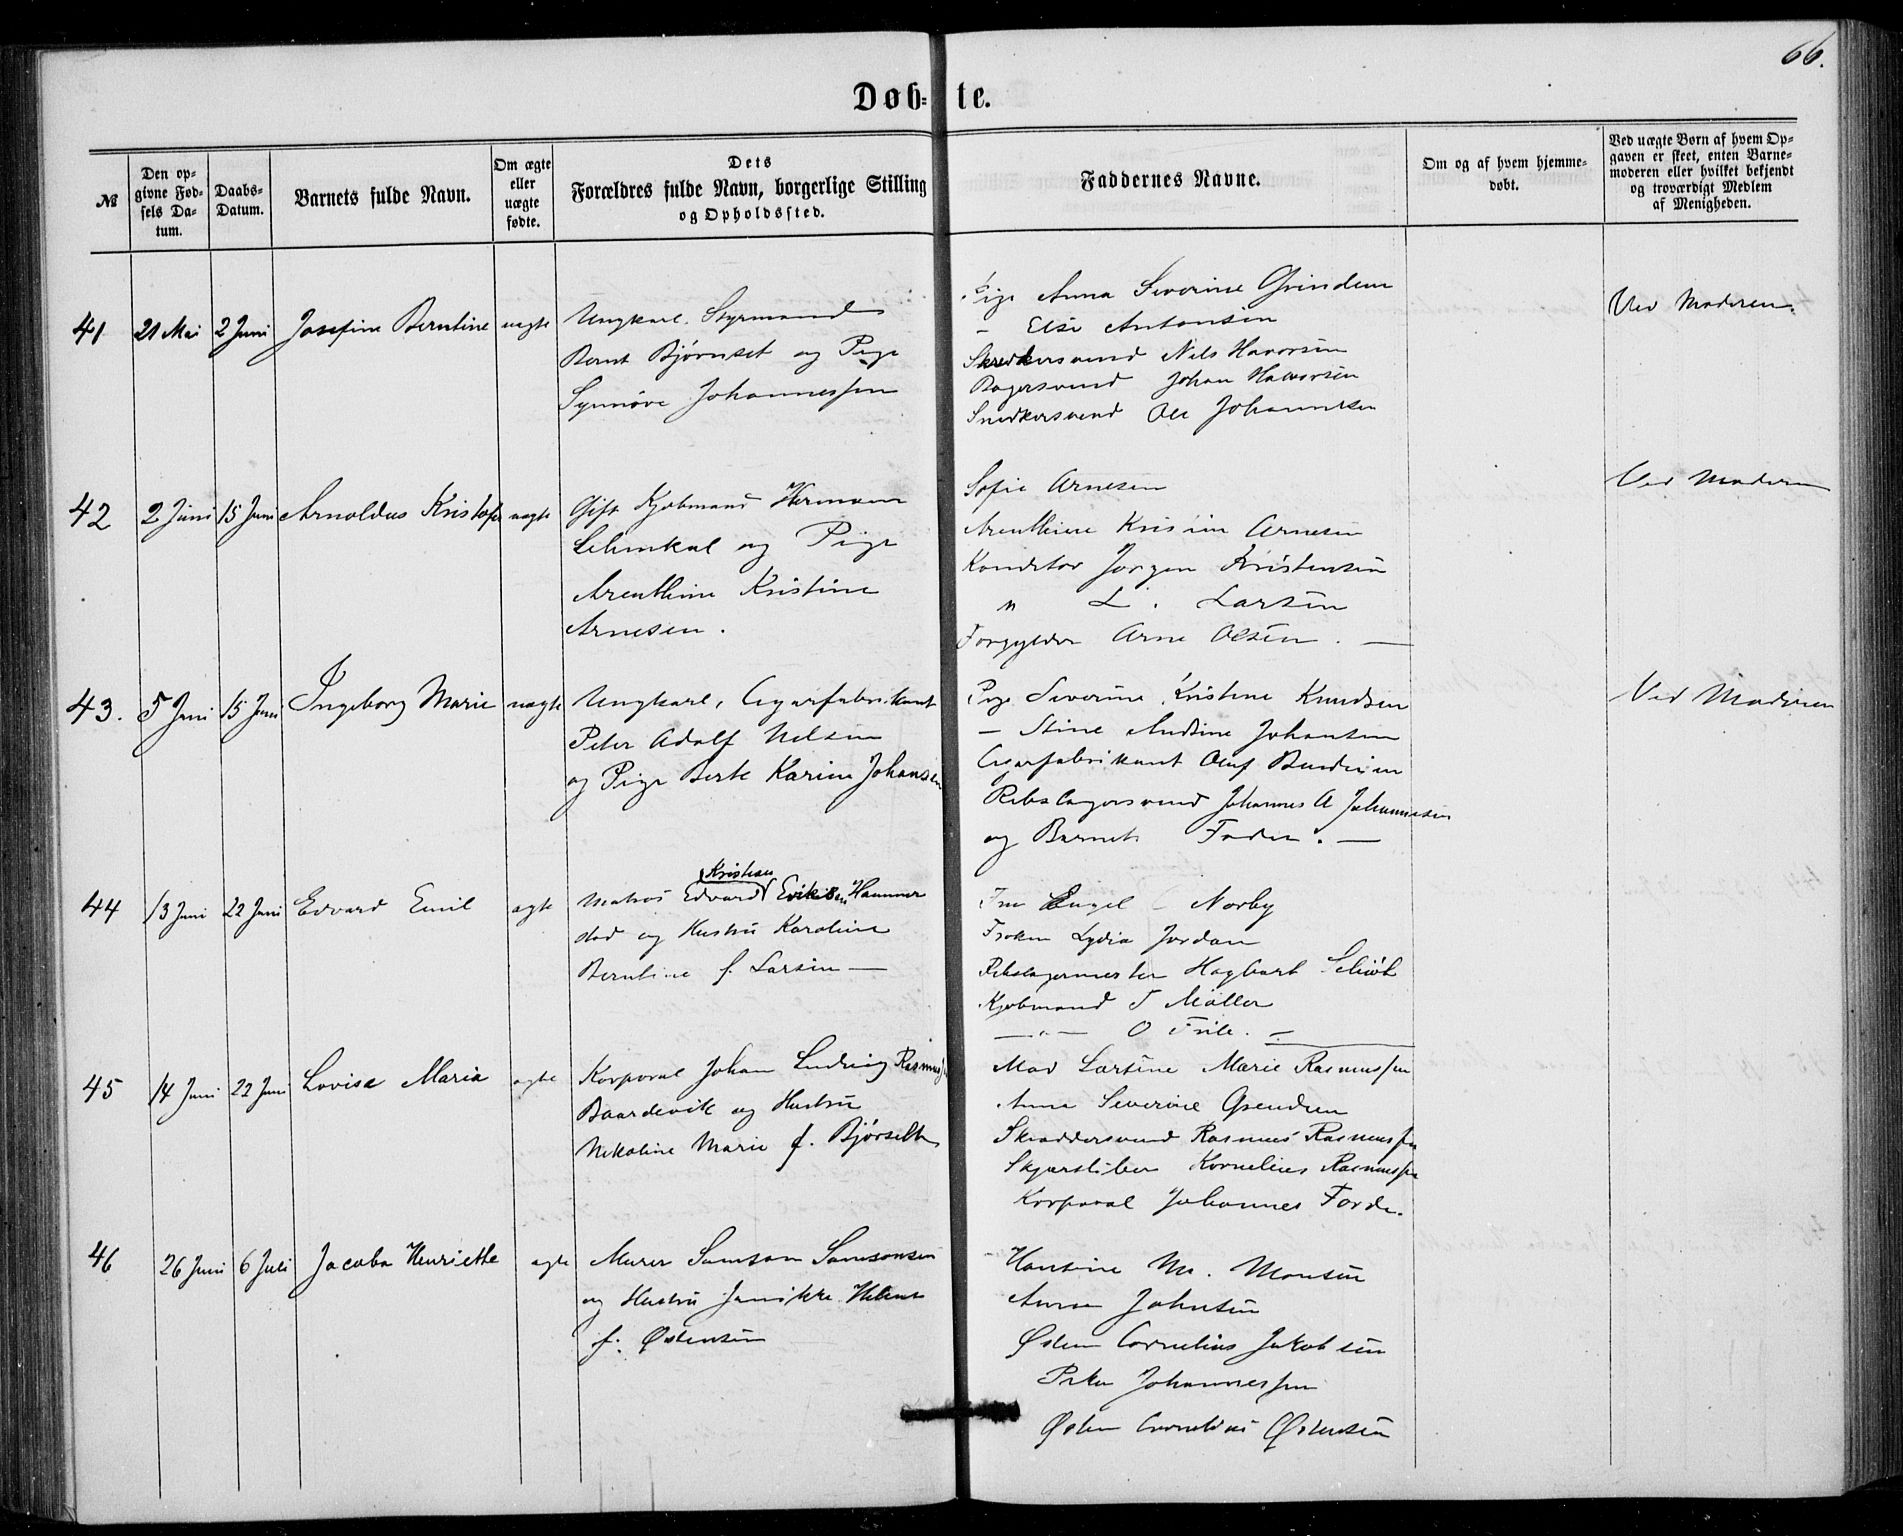 66.
Døb-te.
№
Den op-
givne Fød-
sels Da-
tum.
Daabs-
Datum.
Barnets fulde Navn.
Om ægte
eller
uægte
fødte.
Dets
Forældres fulde Navn, borgerlige Stilling
og Opholdssted.
Faddernes Navne.
Om og af hvem hjemme-
døbt.
Ved uægte Børn af hvem Op-
gaven er skeet, enten Barne-
moderen eller hvilket bekjendt
og troværdigt Medlem
af Menigheden.
41
21 Mai
2 Juni
Josefine Berntine
uægte
Ungkarl. Styrmand
Bernt Bjørnset og Pige
Synnøve Johannessen
Pige Anna Severine Grindem
- Else Antonsen
Skredkersvend Nils Havorsen
Bagersvend Johan Halvorsen
Snedkersvend Ole Johannesen
Ved Moderen.
42
2 Juni
15 Juni
Arnoldus Kristofer
uægte
Gift Kjøbmand Hermann
Lehmkul og Pige
Arenthine Kristine
Arnesen.
Sofie Arnesen
Arenthine Kristine Arnesen
Konditor Jørgen Kristensen
" L. Larsen
Forgylder Arne Olsen. —
Ved Moderen
43.
5 Juni
15 Juni
Ingeborg Marie
uægte
Ungkarl, Cigarfabrikant
Peter Adolf Nelsen
og Pige Berte Karine Johansen
Pige Severine Kristine Knudsen
— Stine Andrine Johansen
Cigarfabrikant Oluf
Rebslagersvend Johannes A Johannesen
og Barnets Fader. —
Ved Moderen
44
13 Juni
22 Juni
Edvard Emil
ægte
Kristian
Matros Edvard Eriksen Hammer
død og Hustru Karoline
Berntine f. Larsen —
Fru Engel Norby
Frøken Lydia Jordan
Rebslagermester Hagbart Schiøt
Kjøbmand T Møller
—"— O Friele. —
45
14 Juni
22 Juni
Lovise Maria
ægte
Korporal Johan Ludvig Rasmussen
Baardevik og Hustru
Nikoline Marie f. Bjørseth
Mad Lartine Marie Rasmussen
Anna Severine Grendem
Skræddersvend Rasmus Rasmussen
Skjærsliber Kornelius Rasmussen
Korporal Johannes Førde.
46
26 Juni
6 Juli
Jacoba Henriette
ægte
Murer Samson Samsonsen
og Hustru Janikke Helene
f. Østensen
Hantine M. Monsen
Anna Johnsen
Østen Cornelius Jakobsen
Peter Johannessen
Østen Cornelius Østensen